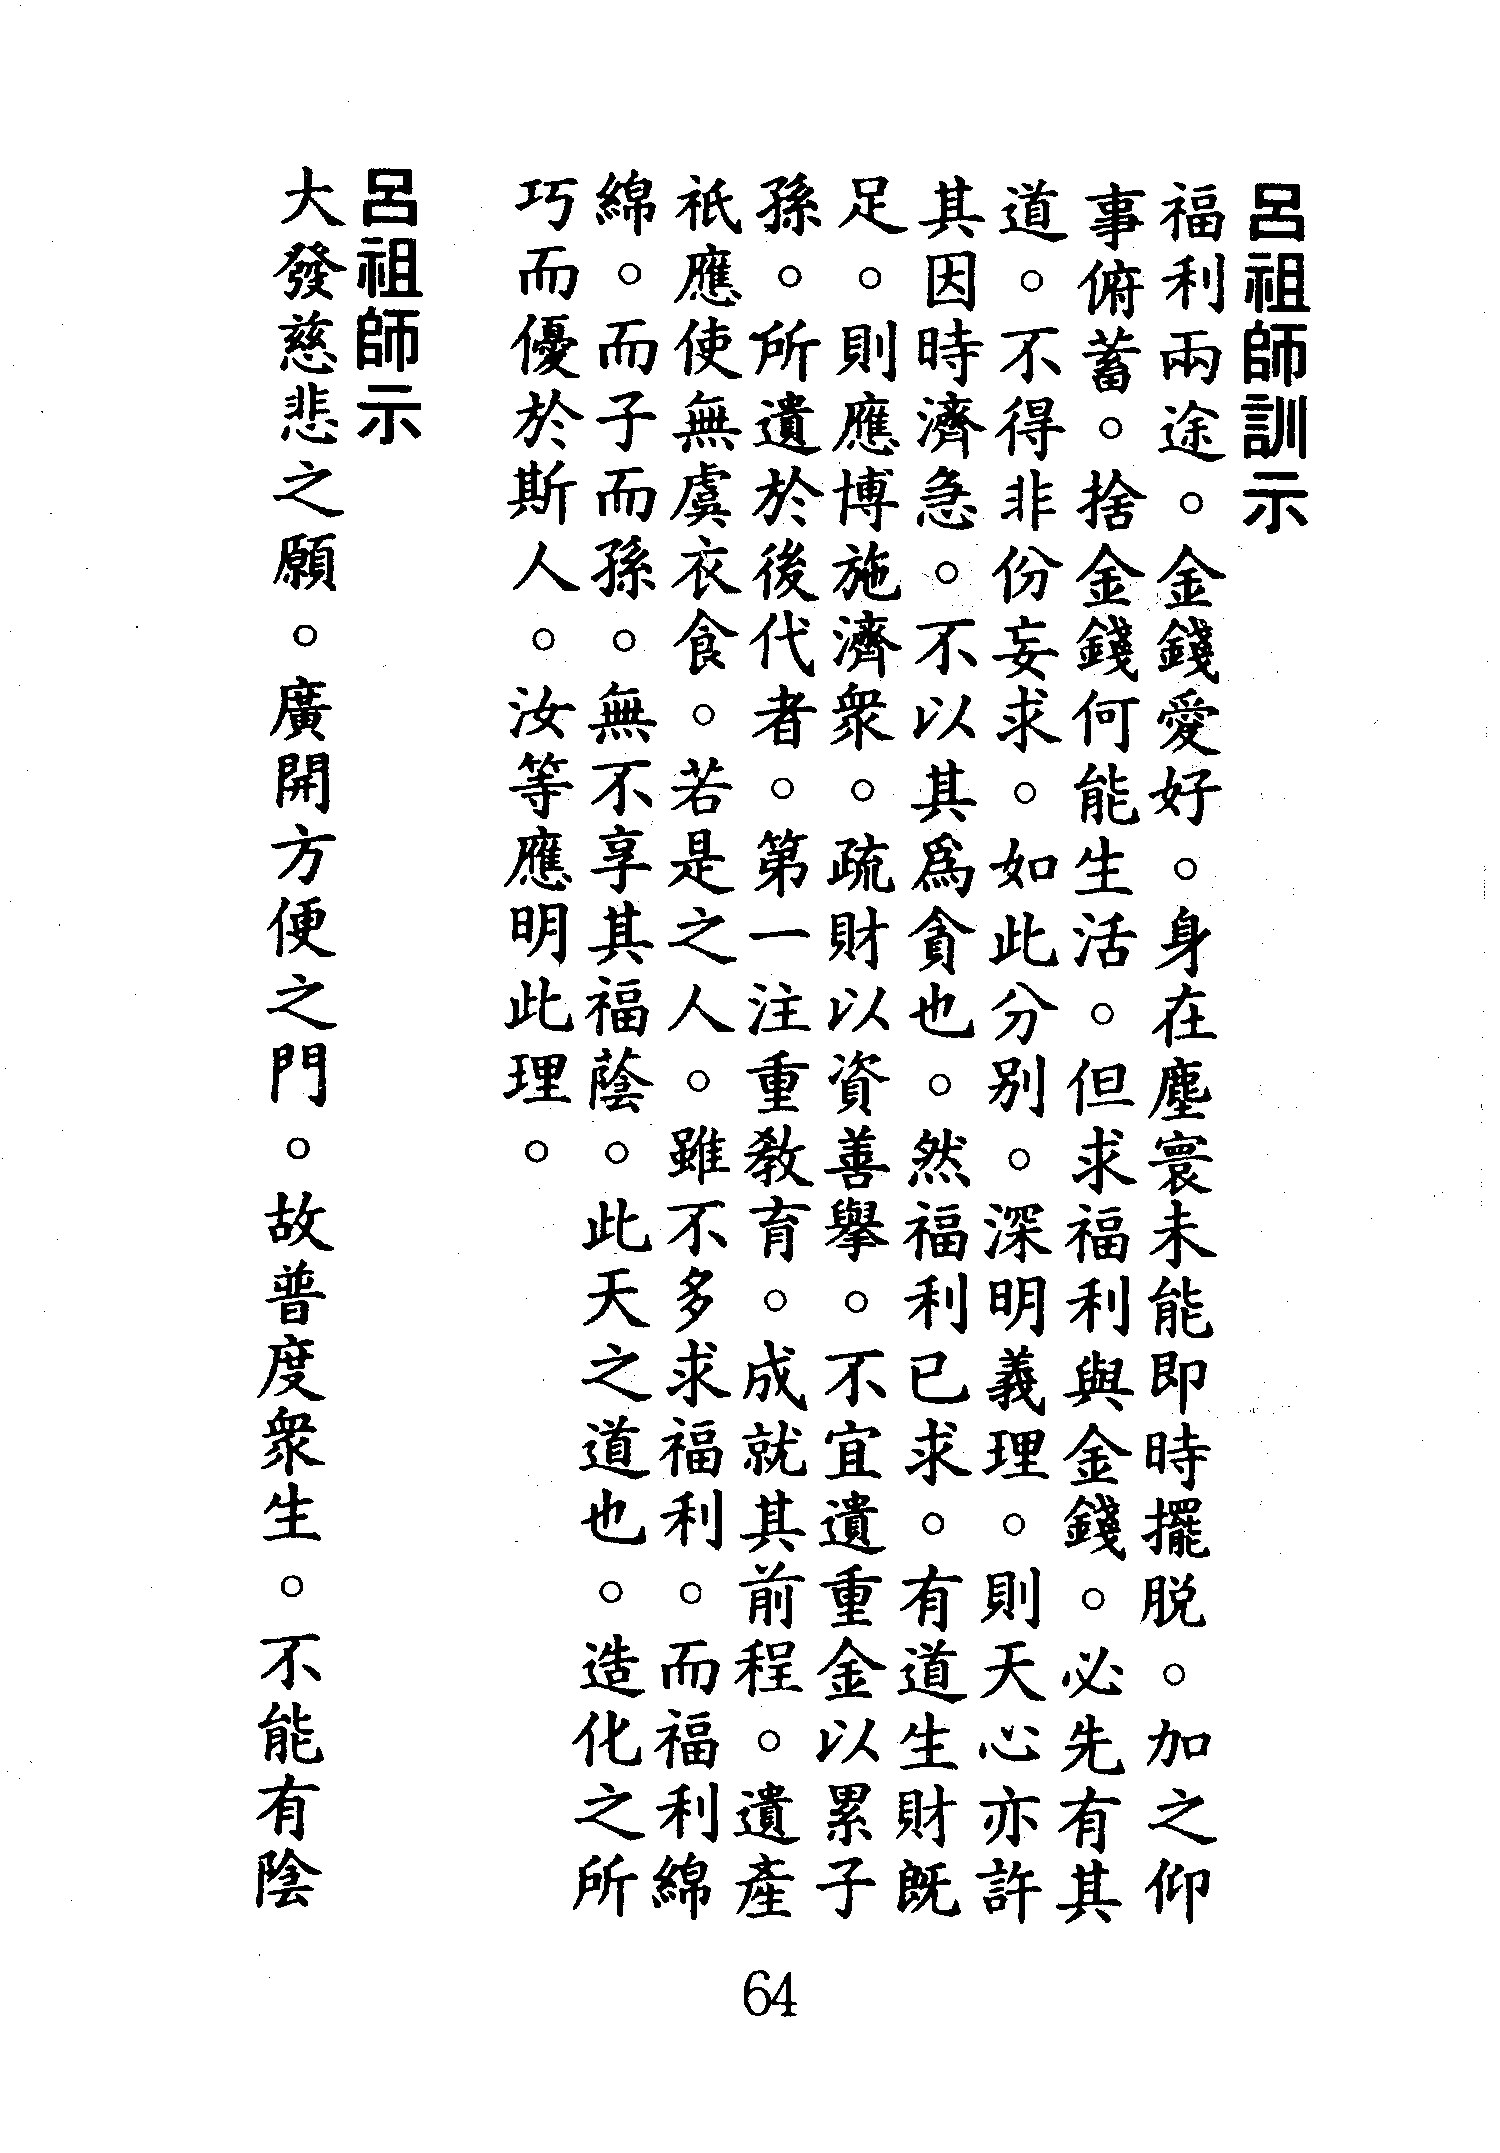 呂祖師訓示
福利兩途。金錢愛好。身在塵寰未能即時擺脫。加之仰
事俯蓄。捨金錢何能生活。但求福利與金錢。必先有其
道。不得非份妄求。如此分別。深明義理。則天心亦許
其因時濟急。不以其為貪也。然福利已求。有道生財既
足。則應博施濟衆。疏財以資善舉。不宜遺重金以累子
孫。所遺於後代者。第一注重教育。成就其前程。遺產
祇應使無虞衣食。若是之人。雖不多求福利。而福利綿
綿。而子而孫。無不享其福蔭。此天之道也。造化之所
巧而優於斯人。汝等應明此理。
呂祖師示
大發慈悲之願。廣開方便之門。故普度衆生。不能有陰
64